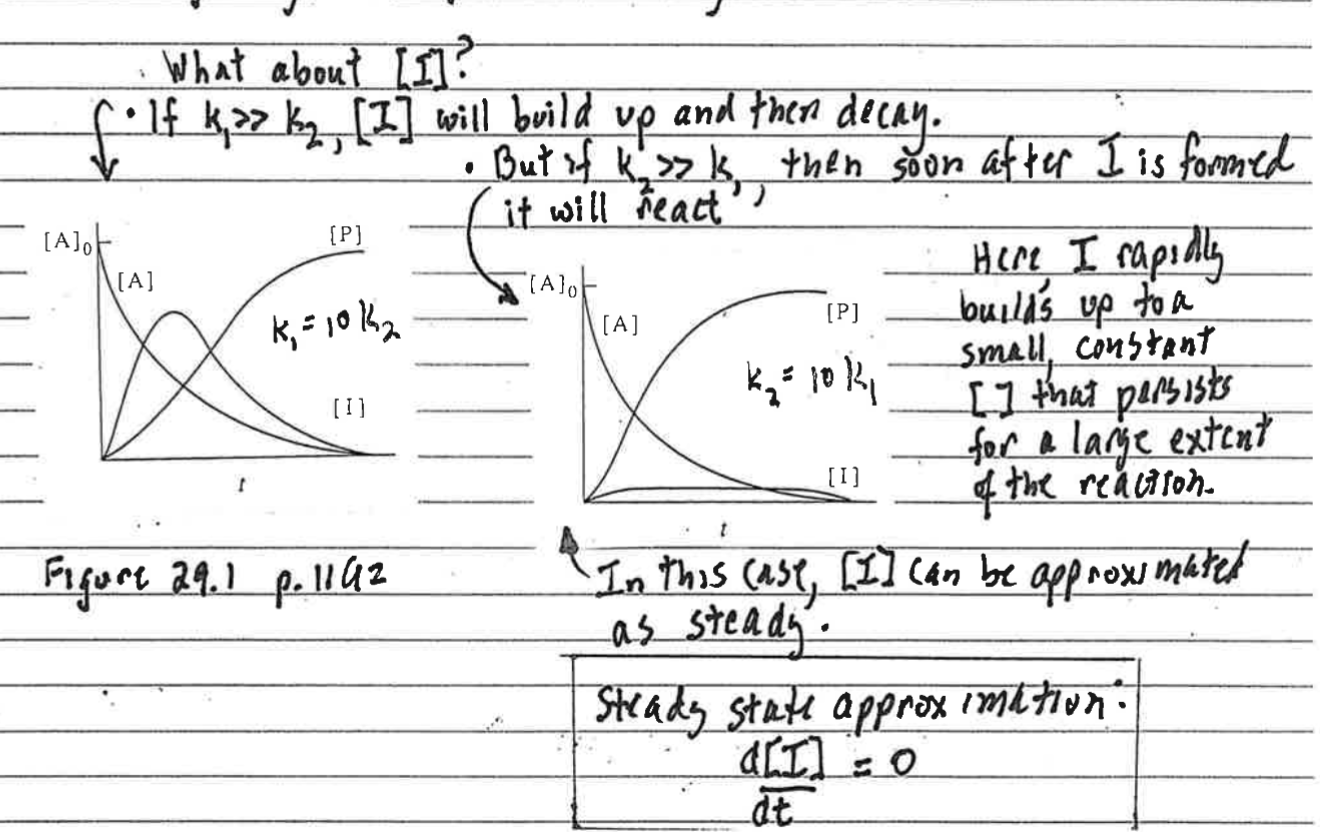 What about [I]?
• If k₁ >> k₂, [I] will build up and then decay.
• But if k₂ >> k₁, then soon after I is formed
it will react
[A]₀
[A]
[P]
k₁ = 10 k₂
[I]
t
Figure 29.1 p. 1192
[A]₀
[A]
[P]
k₂ = 10 k₁
[I]
t
Here, I rapidly
builds up to a
small, constant
[ ] that persists
for a large extent
of the reaction.
In this case, [I] can be approximated
as steady.
Steady state approximation:
d[I]/dt = 0